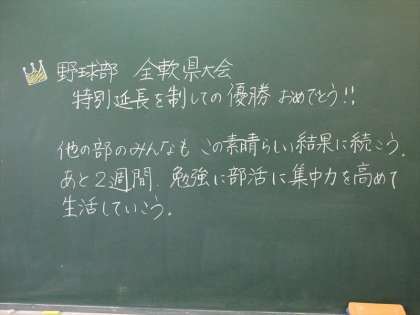 野球部 全軟県大会
特別延長を制しての優勝 おめでとう!!
他の部のみんなも この素晴らしい結果に続こう。
あと2週間、勉強に部活に集中力を高めて
生活していこう。